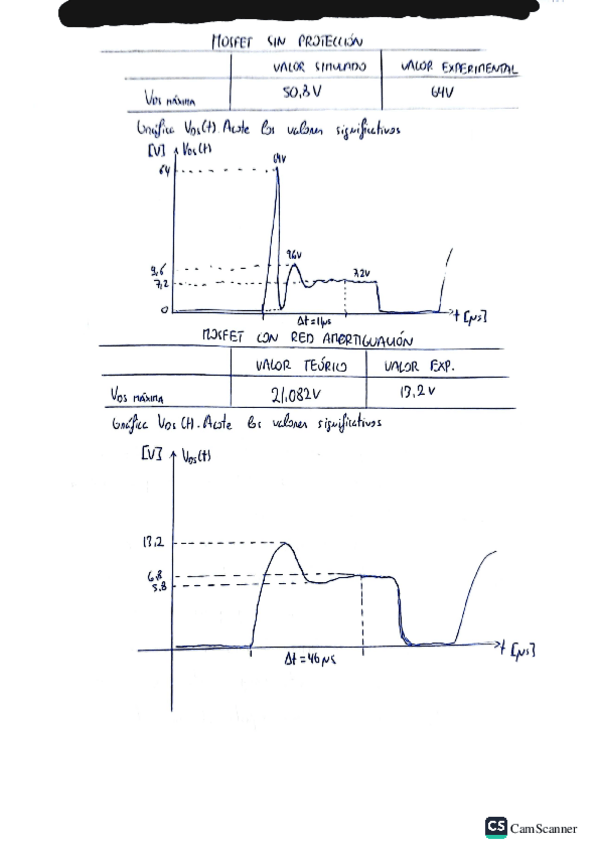 MOSFET SIN PROTECCIÓN
VALOR SIMULADO VALOR EXPERIMENTAL
VDS MÁXIMA 50,8V 64V
Gráfica VDS(t). Acote los valores significativos
[V] VDS(t)
64V
64
9,6V
9,6
7,2V
7,2
0
Δt=11μs
t [μs]
MOSFET CON RED AMORTIGUACIÓN
VALOR TEÓRICO VALOR EXP.
VDS MÁXIMA 21,082V 13,2V
Gráfica VDS(t). Acote los valores significativos
[V] VDS(t)
13,2
6,8
5,8
Δt=46μs
t [μs]
CS CamScanner